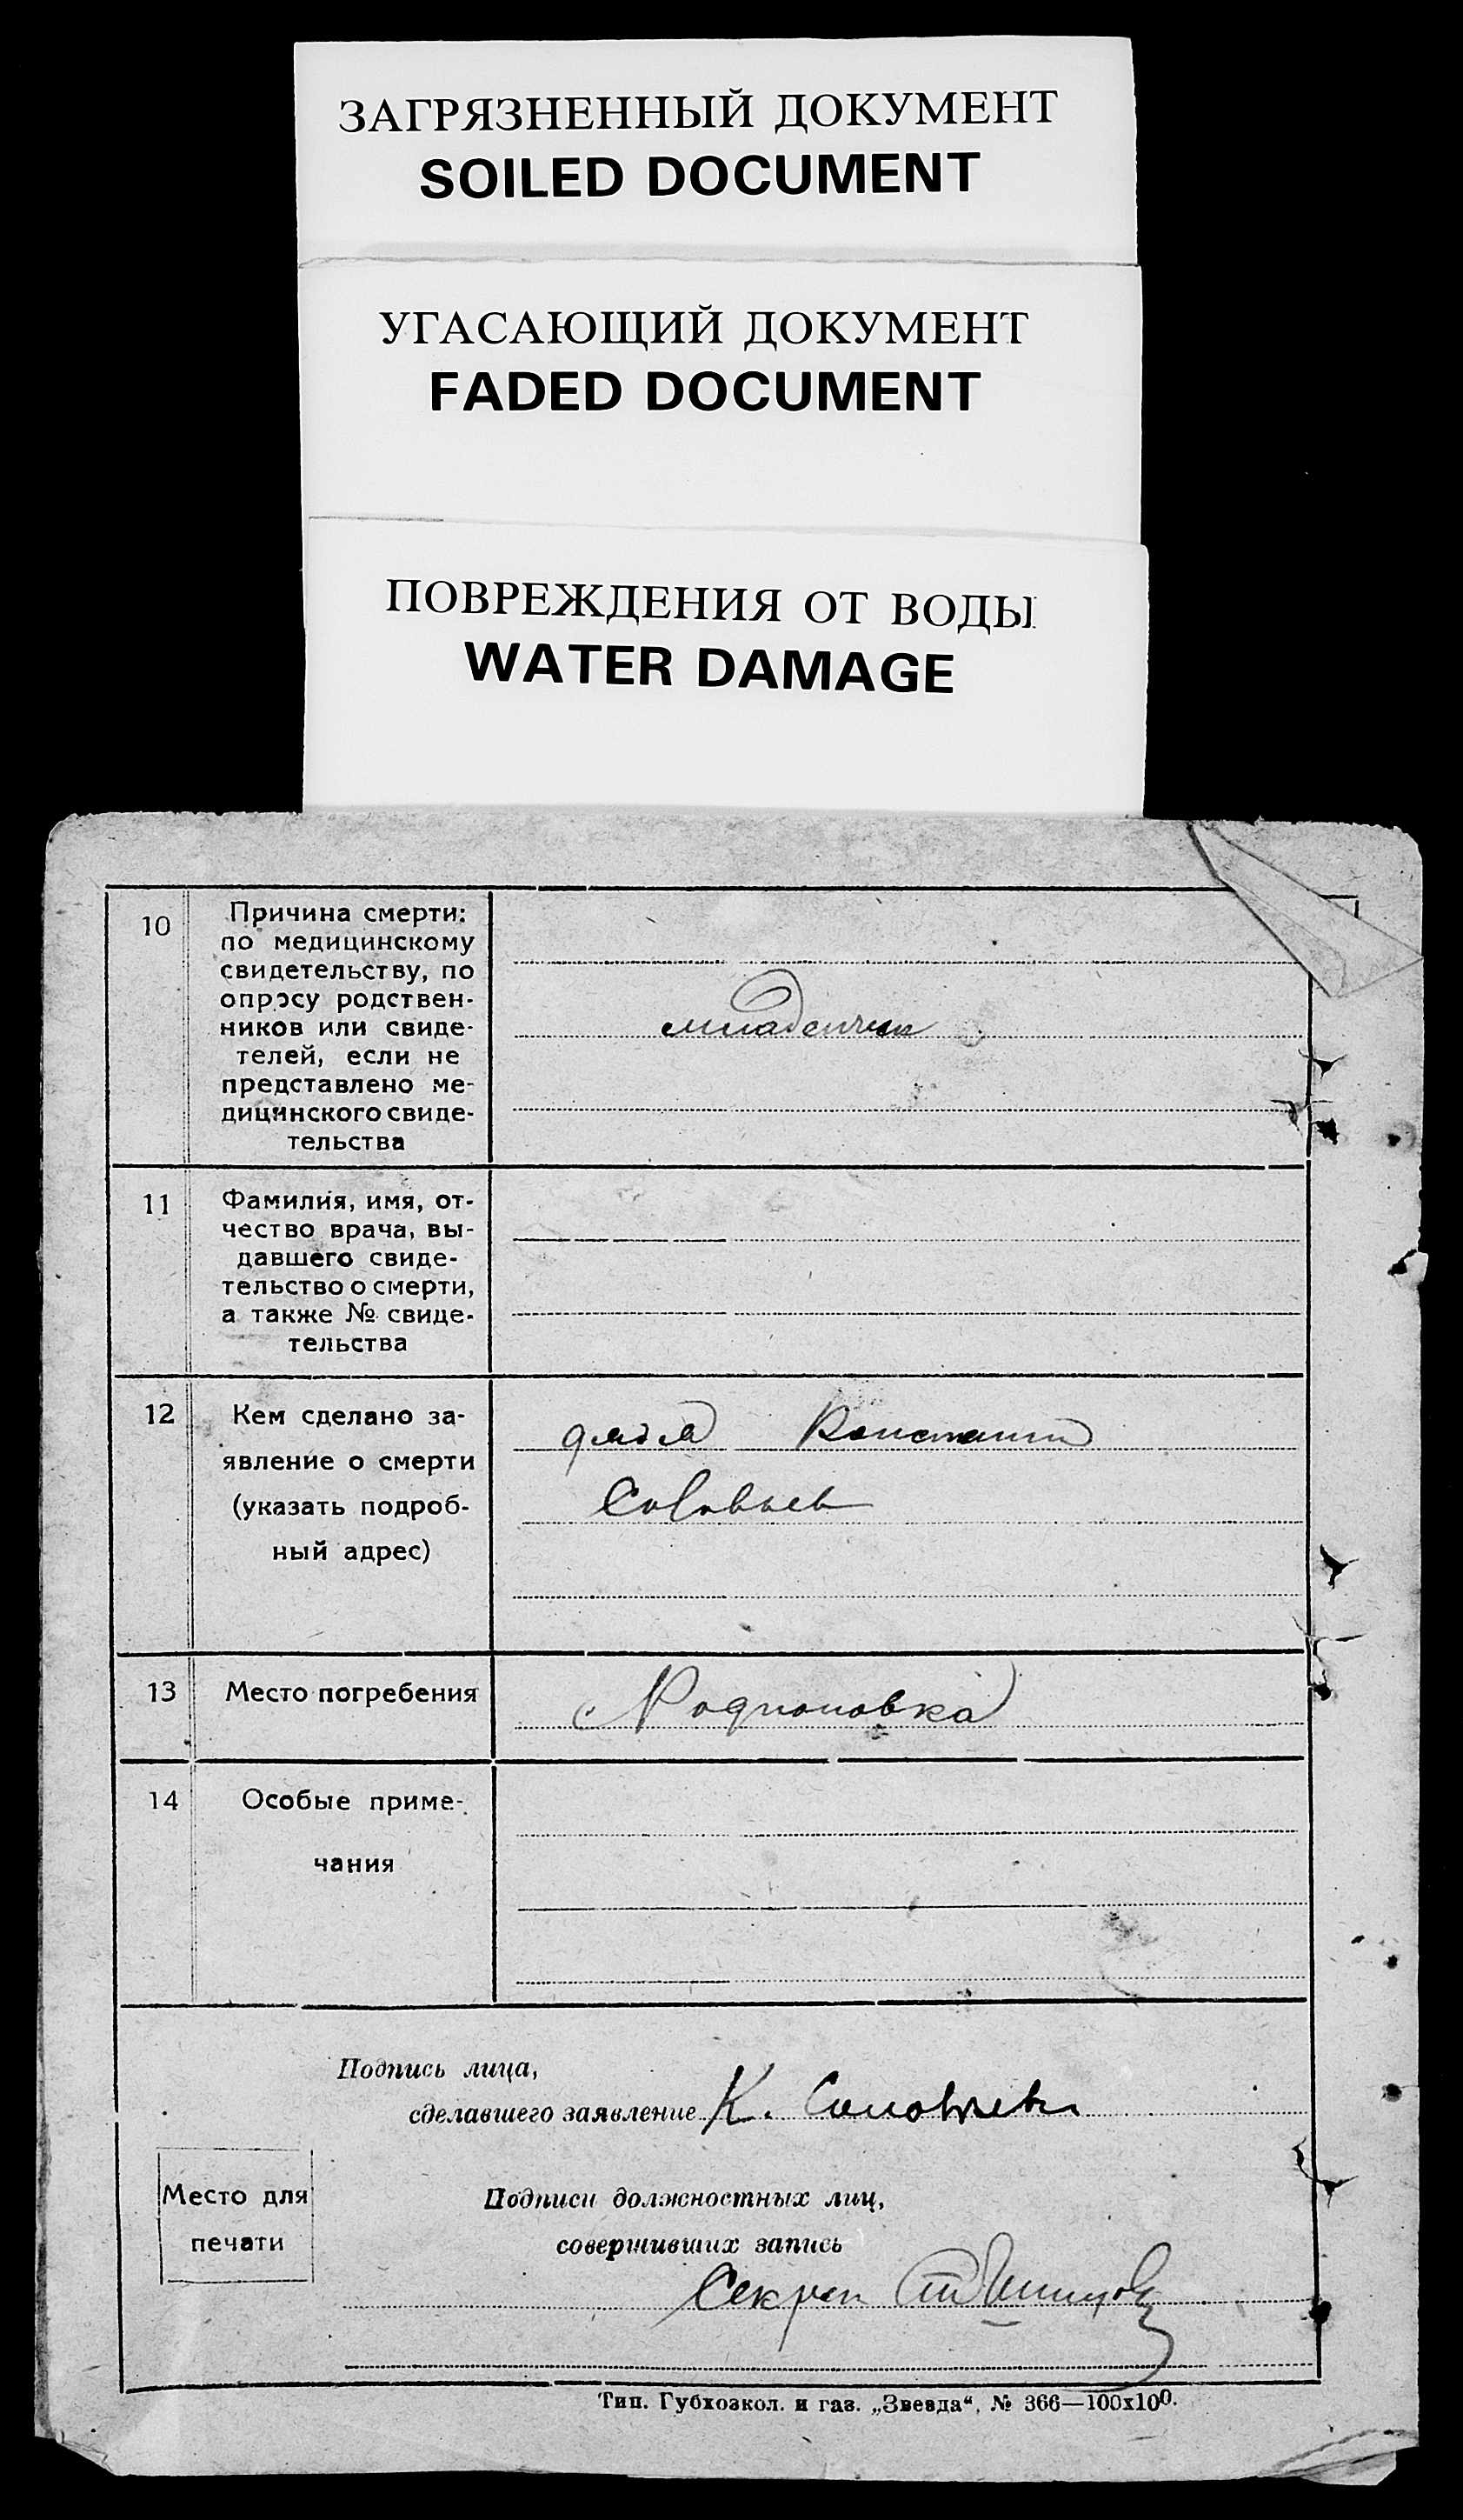 ЗАГРЯЗНЕННЫЙ ДОКУМЕНТ
SOILED DOCUMENT
УГАСАЮЩИЙ ДОКУМЕНТ
FADED DOCUMENT
ПОВРЕЖДЕНИЯ ОТ ВОДЫ
WATER DAMAGE
10
Причина смерти:
по медицинскому
свидетельству, по
опросу родствен-
ников или свиде-
телей, если не
представлено ме-
дицинского свиде-
тельства
11
Фамилия, имя, от-
чество врача, вы-
давшего свиде-
тельство о смерти,
а также № свиде-
тельства
12
Кем сделано за-
явление о смерти
(указать подроб-
ный адрес)
дядя Констант
Соловьев
13
Место погребения
с Родионовка
14
Особые приме-
чания
Подпись лица,
сделавшего заявление К. Соловьев
Место для
печати
Подписи должностных лиц,
совершивших запись
Секрет
Тип. Губхозкол. и газ. „Звезда“, № 366—100х100.